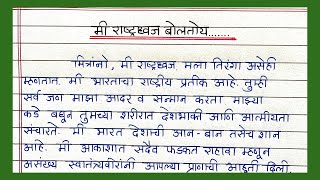 मी राष्ट्रध्वज बोलतोय.......
मित्रांनो, मी राष्ट्रध्वज. मला तिरंगा असेही
म्हणतात. मी भारताचा राष्ट्रीय प्रतीक आहे. तुम्ही
सर्व जण माझा आदर व सन्मान करता. माझ्या
कडे बघून तुमच्या शरीरात देशभक्ती आणि आत्मीयता
संचारते. मी भारत देशाची आन - बान तसेच शान
आहे. मी आकाशात सदैव फडकत राहावा म्हणून
असंख्य स्वातंत्र्यवीरांनी आपल्या प्राणाची आहुती दिली.